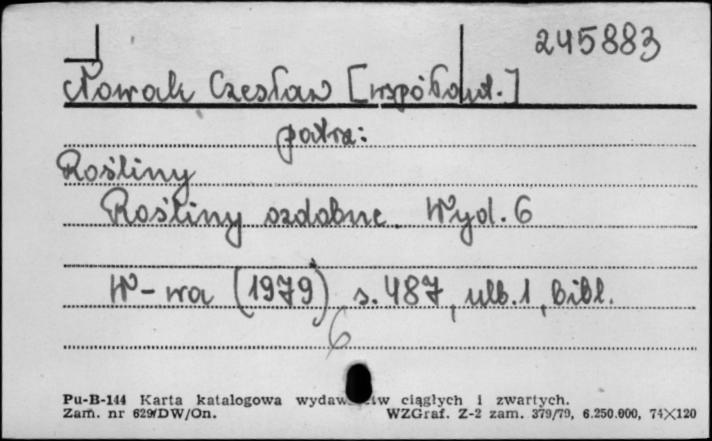 245883
Nowak Czesław [współaut.]
patrz:
Rośliny
Rośliny ozdobne. Wyd. 6
W-wa (1979), s. 487, ulb. 1, bibl.
6
Pu-B-144 Karta katalogowa wydawnictw ciągłych i zwartych.
Zam. nr 629/DW/On. WZGraf. Z-2 zam. 379/79, 6.250.000, 74×120